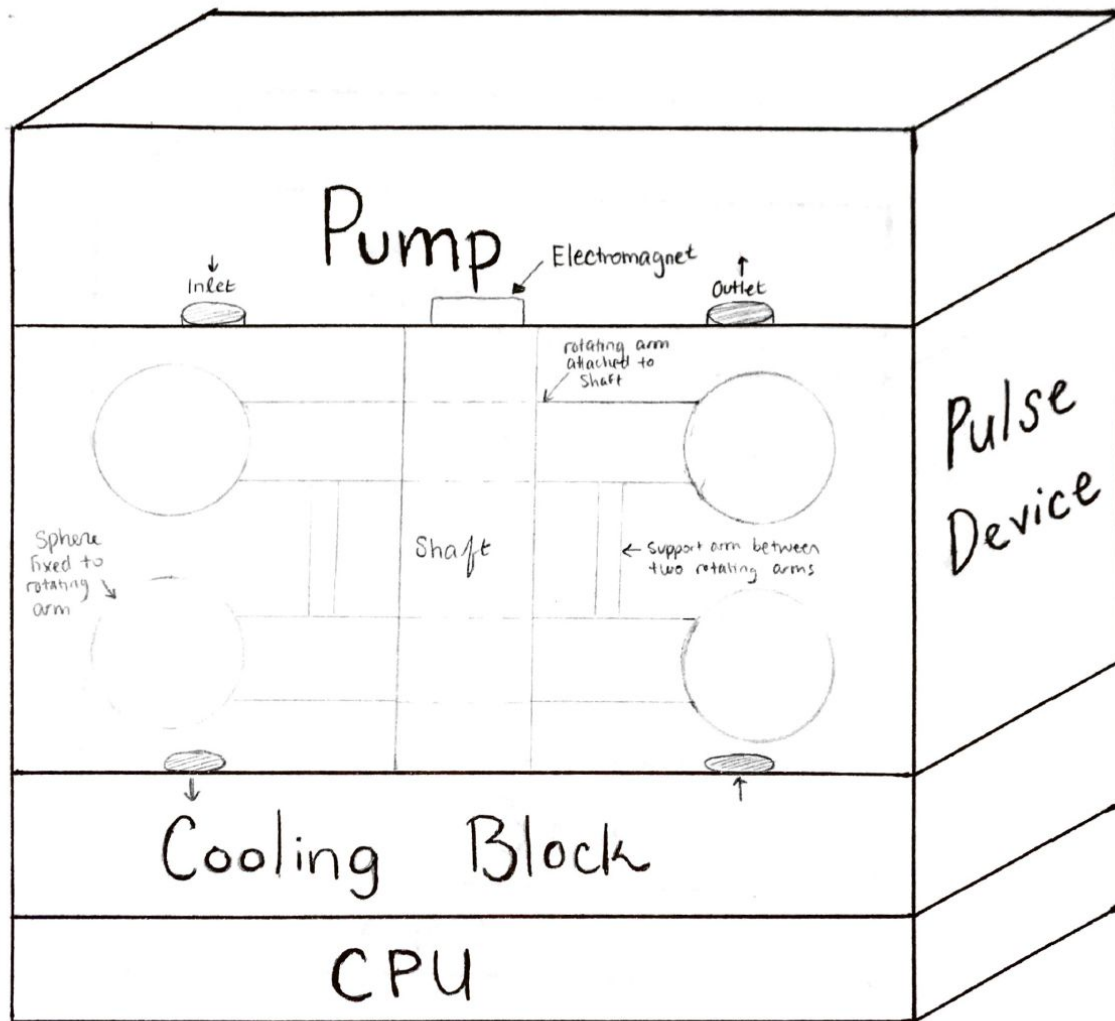 Pump
Electromagnet
Inlet
Outlet
rotating arm
attached to
shaft
Pulse
Device
Sphere
fixed to
rotating
arm
Shaft
← Support arm between
two rotating arms
Cooling Block
CPU